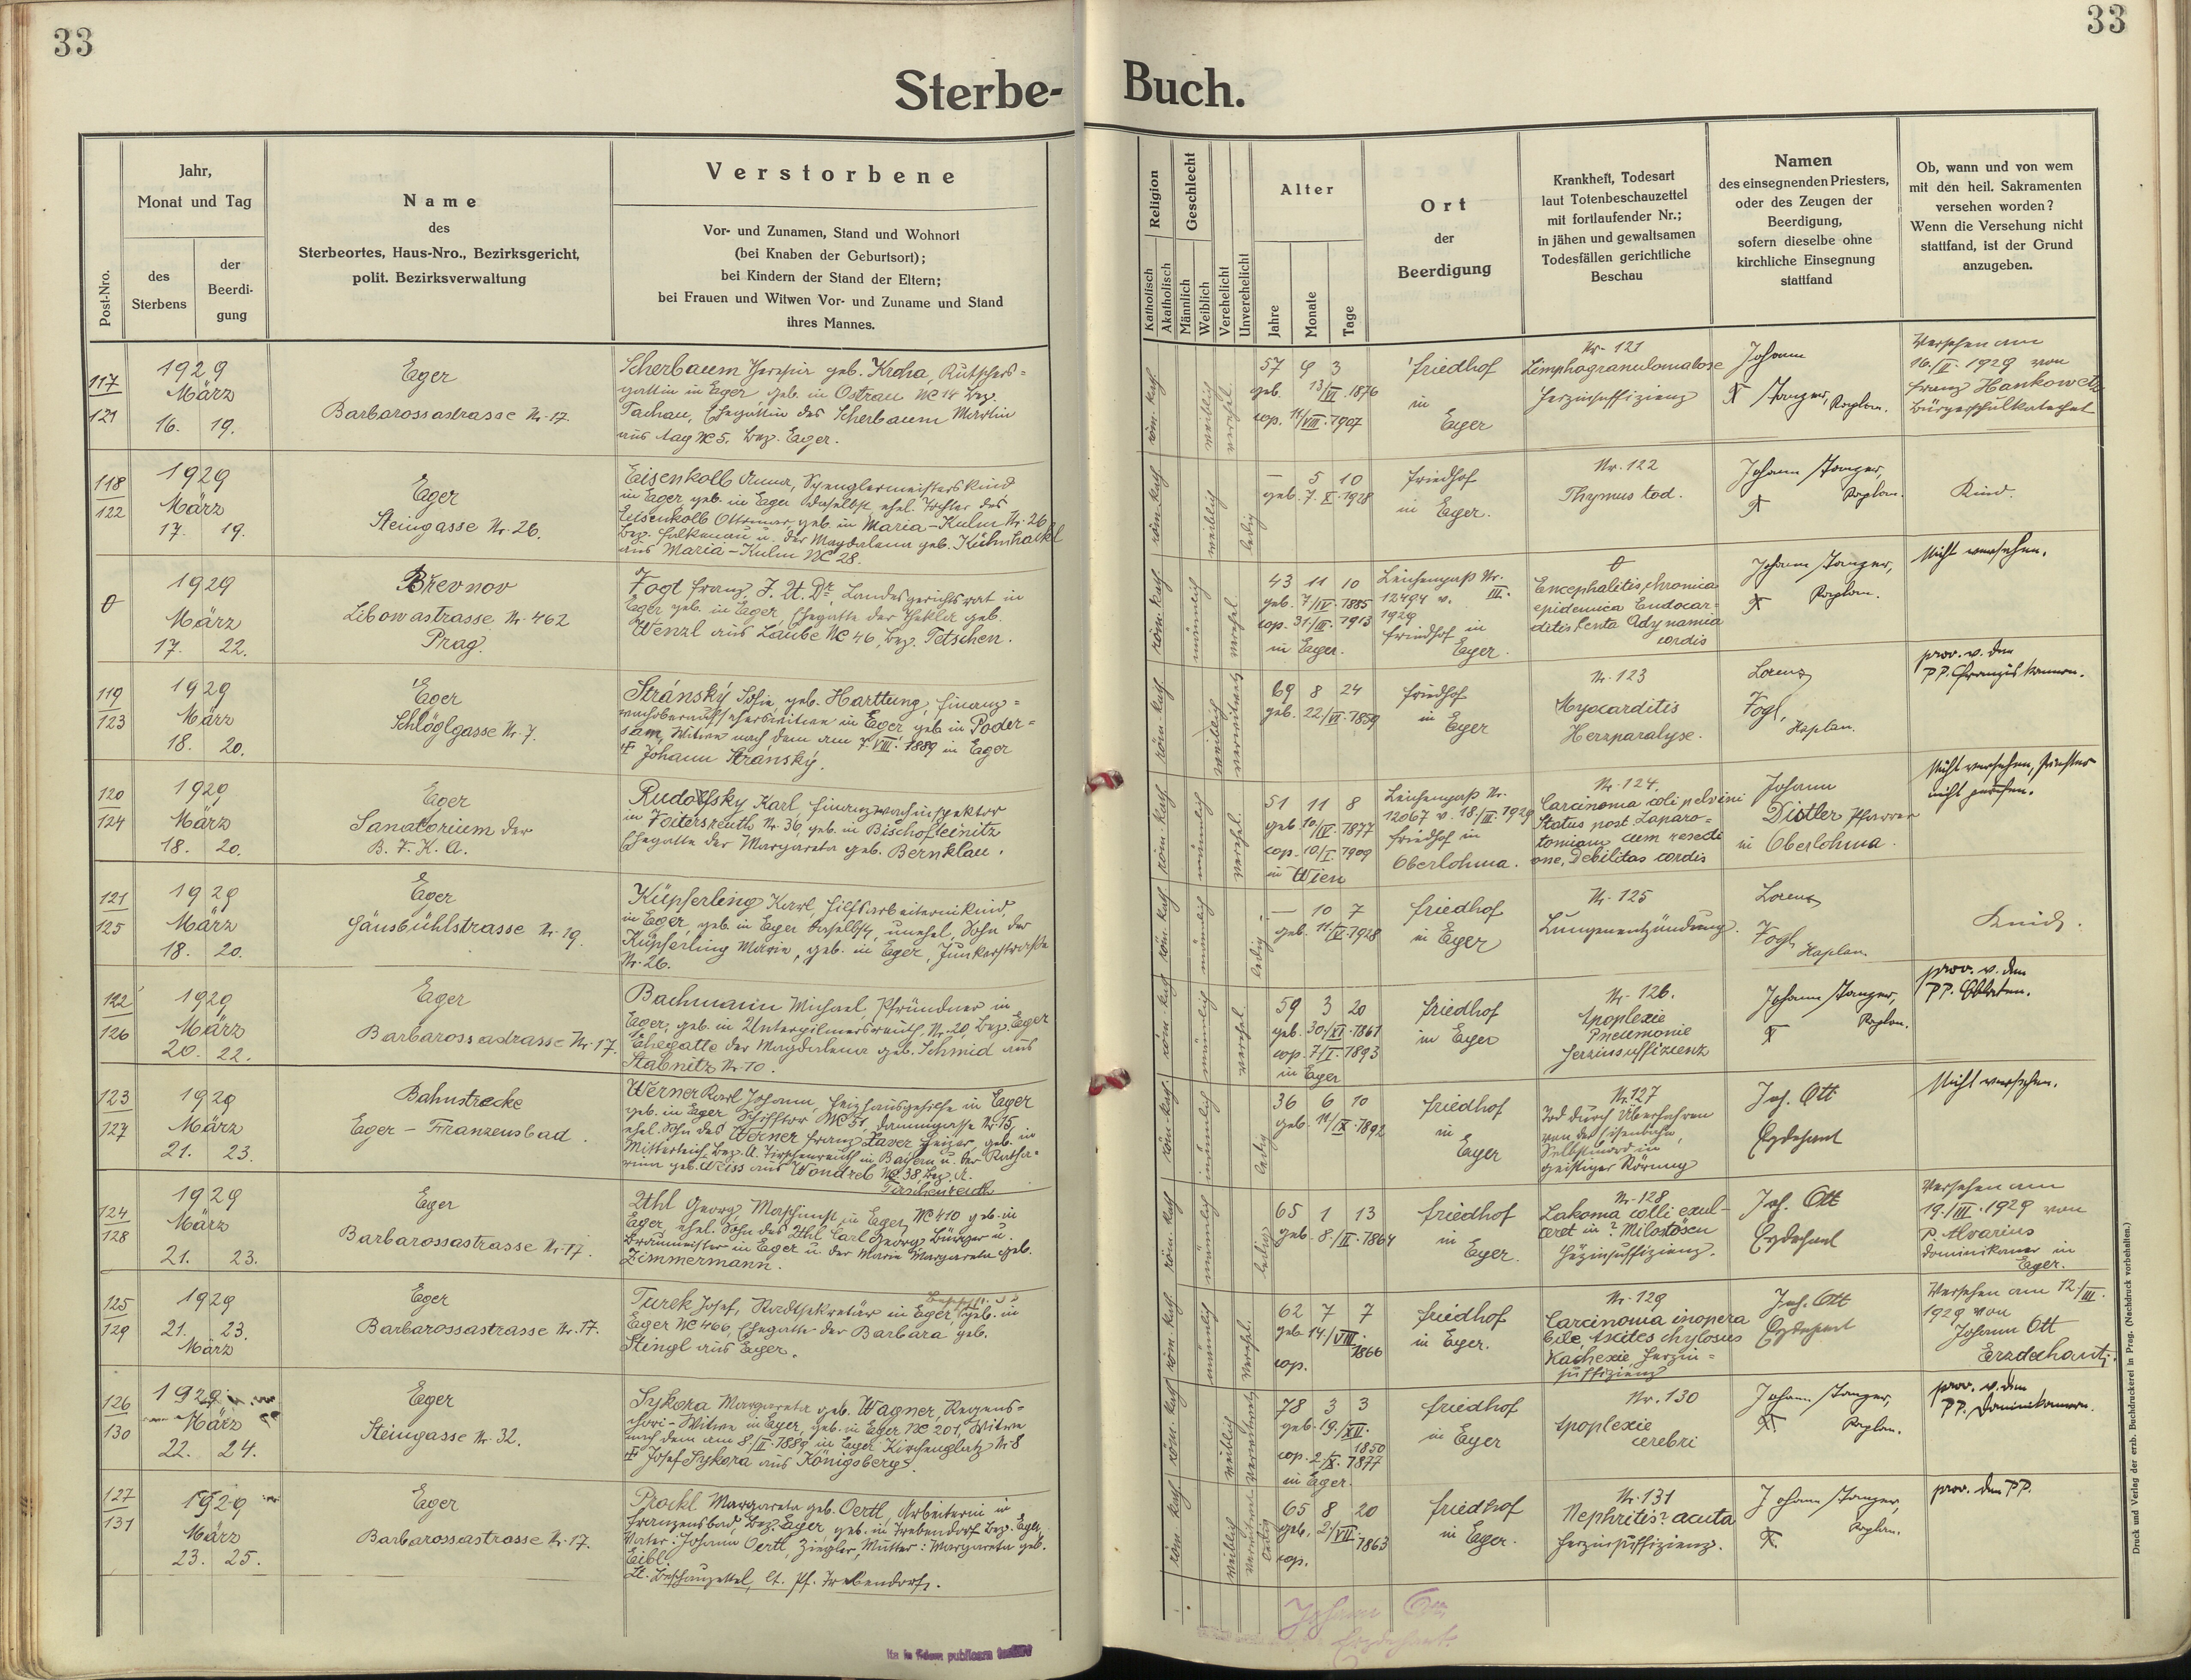 33
33
Sterbe-
Buch.
Post-Nro.
Jahr,
Monat und Tag
des
Sterbens
der
Beerdi-
gung
Name
des
Sterbeortes, Haus-Nro., Bezirksgericht,
polit. Bezirksverwaltung
Verstorbene
Vor- und Zunamen, Stand und Wohnort
(bei Knaben der Geburtsort);
bei Kindern der Stand der Eltern;
bei Frauen und Witwen Vor- und Zuname und Stand
ihres Mannes.
Religion
Katholisch
Akatholisch
Geschlecht
Männlich
Weiblich
Verehelicht
Unverehelicht
Alter
Jahre
Monate
Tage
Ort
der
Beerdigung
Krankheit, Todesart
laut Totenbeschauzettel
mit fortlaufender Nr.;
in jähen und gewaltsamen
Todesfällen gerichtliche
Beschau
Namen
des einsegnenden Priesters,
oder des Zeugen der
Beerdigung,
sofern dieselbe ohne
kirchliche Einsegnung
stattfand
Ob, wann und von wem
mit den heil. Sakramenten
versehen worden?
Wenn die Versehung nicht
stattfand, ist der Grund
anzugeben.
117
121
1929
März
16. 19.
Eger
Barbarossastrasse Nr. 17.
Scherbaum geb. Kroha, Kutschers=
gattin in Eger geb. in Ostrau NC 14 Bez.
Tachau, Ehegattin des Scherbaum Martin
aus Aag NC 5. Bez. Eger.
röm. kath.
weiblich
verehel.
57 9 3
geb. 13/VI. 1876
cop. 11/VIII. 1907
Friedhof
in
Eger
Nr. 121
Limphogranulomatose
Herzinsuffizienz
Johann
Stanger, Kaplan.
Versehen am
16./II. 1929 von
Franz Hankowetz
Bürgerschulkatechet
118
122
1929
März
17. 19.
Eger
Steingasse Nr. 26.
Eisenkolb Anna, Spenglermeisterskind
in Eger geb. in Eger daselbst, ehel. Tochter des
Eisenkolb Ottomar, geb. in Maria-Kulm Nr. 26
Bez. Falkenau u. der Magdalena geb. Kühnhackl
aus Maria-Kulm NC 28.
röm. kath.
weiblich
ledig
— 5 10
geb. 7. X. 1928
Friedhof
in Eger.
Nr. 122
Thymus tod.
Johann Stanger,
Kaplan.
Kind.
0
1929
März
17. 22.
Břevnov
Libowastrasse Nr. 462
Prag.
Vogt Franz, J. U. Dr. Landesgerichtsrat in
Eger geb. in Eger, Ehegatte der Thekla geb.
Wenzl aus Laube NC 46, Bez. Tetschen.
röm. kath.
männlich
verehel.
43 11 10
geb. 7/IV. 1885
cop. 31./III. 1913
in Eger.
Leichenpaß Nr.
12494 v. III.
1929
Friedhof in
Eger.
0
Encephalitis chronica
epidemica Endocar-
ditis lenta Adynamia
cordis
Johann Stanger,
Kaplan.
Nicht versehen.
119
123
1929
März
18. 20.
Eger
Schlöglgasse Nr. 7.
Stránský Sofie, geb. Harttung, Finanz=
wachoberaufseherswitwe in Eger geb. in Poder=
sam, Witwe nach dem am 7. VIII. 1889 in Eger
Johann Stránský.
röm. kath.
weiblich
verwitwet
69 8 24
geb. 22/VI. 1859
Friedhof
in Eger
Nr. 123
Myocarditis
Herzparalyse.
Lorenz
Vogl,
Kaplan.
prov. v. den
PP. Franziskanern.
120
124
1929
März
18. 20.
Eger
Sanatorium der
B. F. K. A.
Rudolfsky Karl Finanzwachinspektor
in Voitersreuth Nr. 36, geb. in Bischofteinitz
Ehegatte der Margareta geb. Bernklau.
röm. kath.
männlich
verehel.
51 11 8
geb. 10/IV. 1877
cop. 10/I. 1909
in Wien
Leichenpaß Nr.
12067 v. 18/III. 1929
Friedhof in
Oberlohma.
Nr. 124.
Carcinoma coli pelvini
Status post Laparo-
tomiam cum resecti
one, Debilitas cordis
Johann
Distler Pfarrer
in Oberlohma.
Nicht versehen, Priester
nicht gerufen.
121
125
1929
März
18. 20.
Eger
Gänsbühlstrasse Nr. 19.
Küpferling Karl, Hilfsarbeiterinkind,
in Eger, geb. in Eger daselbst, unehel. Sohn der
Küpferling Marie, geb. in Eger, Junkerstraße
Nr. 26.
röm. kath.
männlich
ledig
— 10 7
geb. 11/V. 1928
Friedhof
in Eger
Nr. 125
Lungenentzündung.
Lorenz
Vogl
Kaplan
Kind.
122
126
1929
März
20. 22.
Eger
Barbarossastrasse Nr. 17.
Bachmann Michael, Pfründner in
Eger, geb. in Unterpilmersreuth, Nr. 20, Bez. Eger
Ehegatte der Magdalena geb. Schmid aus
Stabnitz Nr. 10.
röm. kath.
männlich
verehel.
59 3 20
geb. 30/XI. 1861
cop. 7/I. 1893
in Eger
Friedhof
in Eger
Nr. 126.
Apoplexie
Pneumonie
Herzinsuffizienz
Johann Stanger,
Kaplan.
prov. v. den
PP. Oblaten.
123
127
1929
März
21. 23.
Bahnstrecke
Eger - Franzensbad.
Werner Karl Johann, Heizhausgehilfe in Eger
geb. in Eger Schifftor NC 31, Dammgasse Nr. 15,
ehel. Sohn des Werner Franz Xaver Heizer, geb. in
Mitterteich, Bez. A. Tirschenreuth in Bayern u. der Katha-
rina geb. Weiss aus Wondreb NC 38, Bez. A.
Tirschenreuth
röm. kath.
männlich
ledig
36 6 10
geb. 11/IX. 1892
Friedhof
in
Eger
Nr. 127
Tod durch Überfahren
von der Eisenbahn,
Selbstmord in
geistiger Störung
Joh. Ott
Erzdechant
Nicht versehen.
124
128
1929
März
21. 23.
Eger
Barbarossastrasse Nr. 17.
Uhl Georg, Maschinist in Eger, NC 410 geb. in
Eger, ehel. Sohn des Uhl Carl Georg Bürger u.
Braumeister in Eger u. der Marie Margareta geb.
Zimmermann.
röm. kath.
männlich
ledig
65 1 13
geb. 8./II. 1864
Friedhof
in
Eger.
Nr. 128
Joh. Ott
Erzdechant
Versehen am
19./III. 1929 von
P. Alvarius
Dominikaner in
Eger.
125
129
1929
21. 23.
März
Eger
Barbarossastrasse Nr. 17.
Turek Josef, Stadtsekretär in Eger, geb. in
Eger NC 466, Ehegatte der Barbara geb.
Stingl aus Eger.
röm. kath.
männlich
verehel.
62 7 7
geb. 14./VIII.
1866
cop.
Friedhof
in Eger.
Nr. 129
Carcinoma inopera
bile, Ascites chylosus
Kachexie, Herzin=
suffizienz
Joh. Ott
Erzdechant
Versehen am 12/III.
1929 von
Johann Ott
Erzdechant.
126
130
1929
März
22. 24.
Eger
Steingasse Nr. 32.
Sykora Margareta geb. Wagner, Regens=
chori-Witwe in Eger, geb. in Eger NC 201, Witwe
nach dem am 8./II. 1889 in Eger Kirchenplatz Nr. 8
Josef Sykora aus Königsberg.
röm. kath.
weiblich
verwitwet
78 3 3
geb. 19./XII.
1850
cop. 2/X. 1877
in Eger.
Friedhof
in Eger
Nr. 130
Apoplexie
cerebri
Johann Stanger,
Kaplan.
prov. v. den
PP. Dominikanern.
127
131
1929
März
23. 25.
Eger
Barbarossastrasse Nr. 17.
Prockl Margareta geb. Oertl, Arbeiterin in
Franzensbad, Bez. Eger, geb. in Trebendorf Bez. Eger.
Vater: Johann Oertl, Ziegler, Mutter: Margareta geb.
Eibl.
Lt. Beschauzettel, lt. Pf. Trebendorf.
röm. kath.
weiblich
ledig
65 8 20
geb. 2/VII.
1863
cop.
Friedhof
in Eger.
Nr. 131
Nephritis? acuta
Herzinsuffizienz.
Johann Stanger,
Kaplan.
prov. den PP.
Johann Ott
Erzdechant.
Ita in fidem publicam
Druck und Verlag der erzb. Buchdruckerei in Prag. (Nachdruck vorbehalten.)